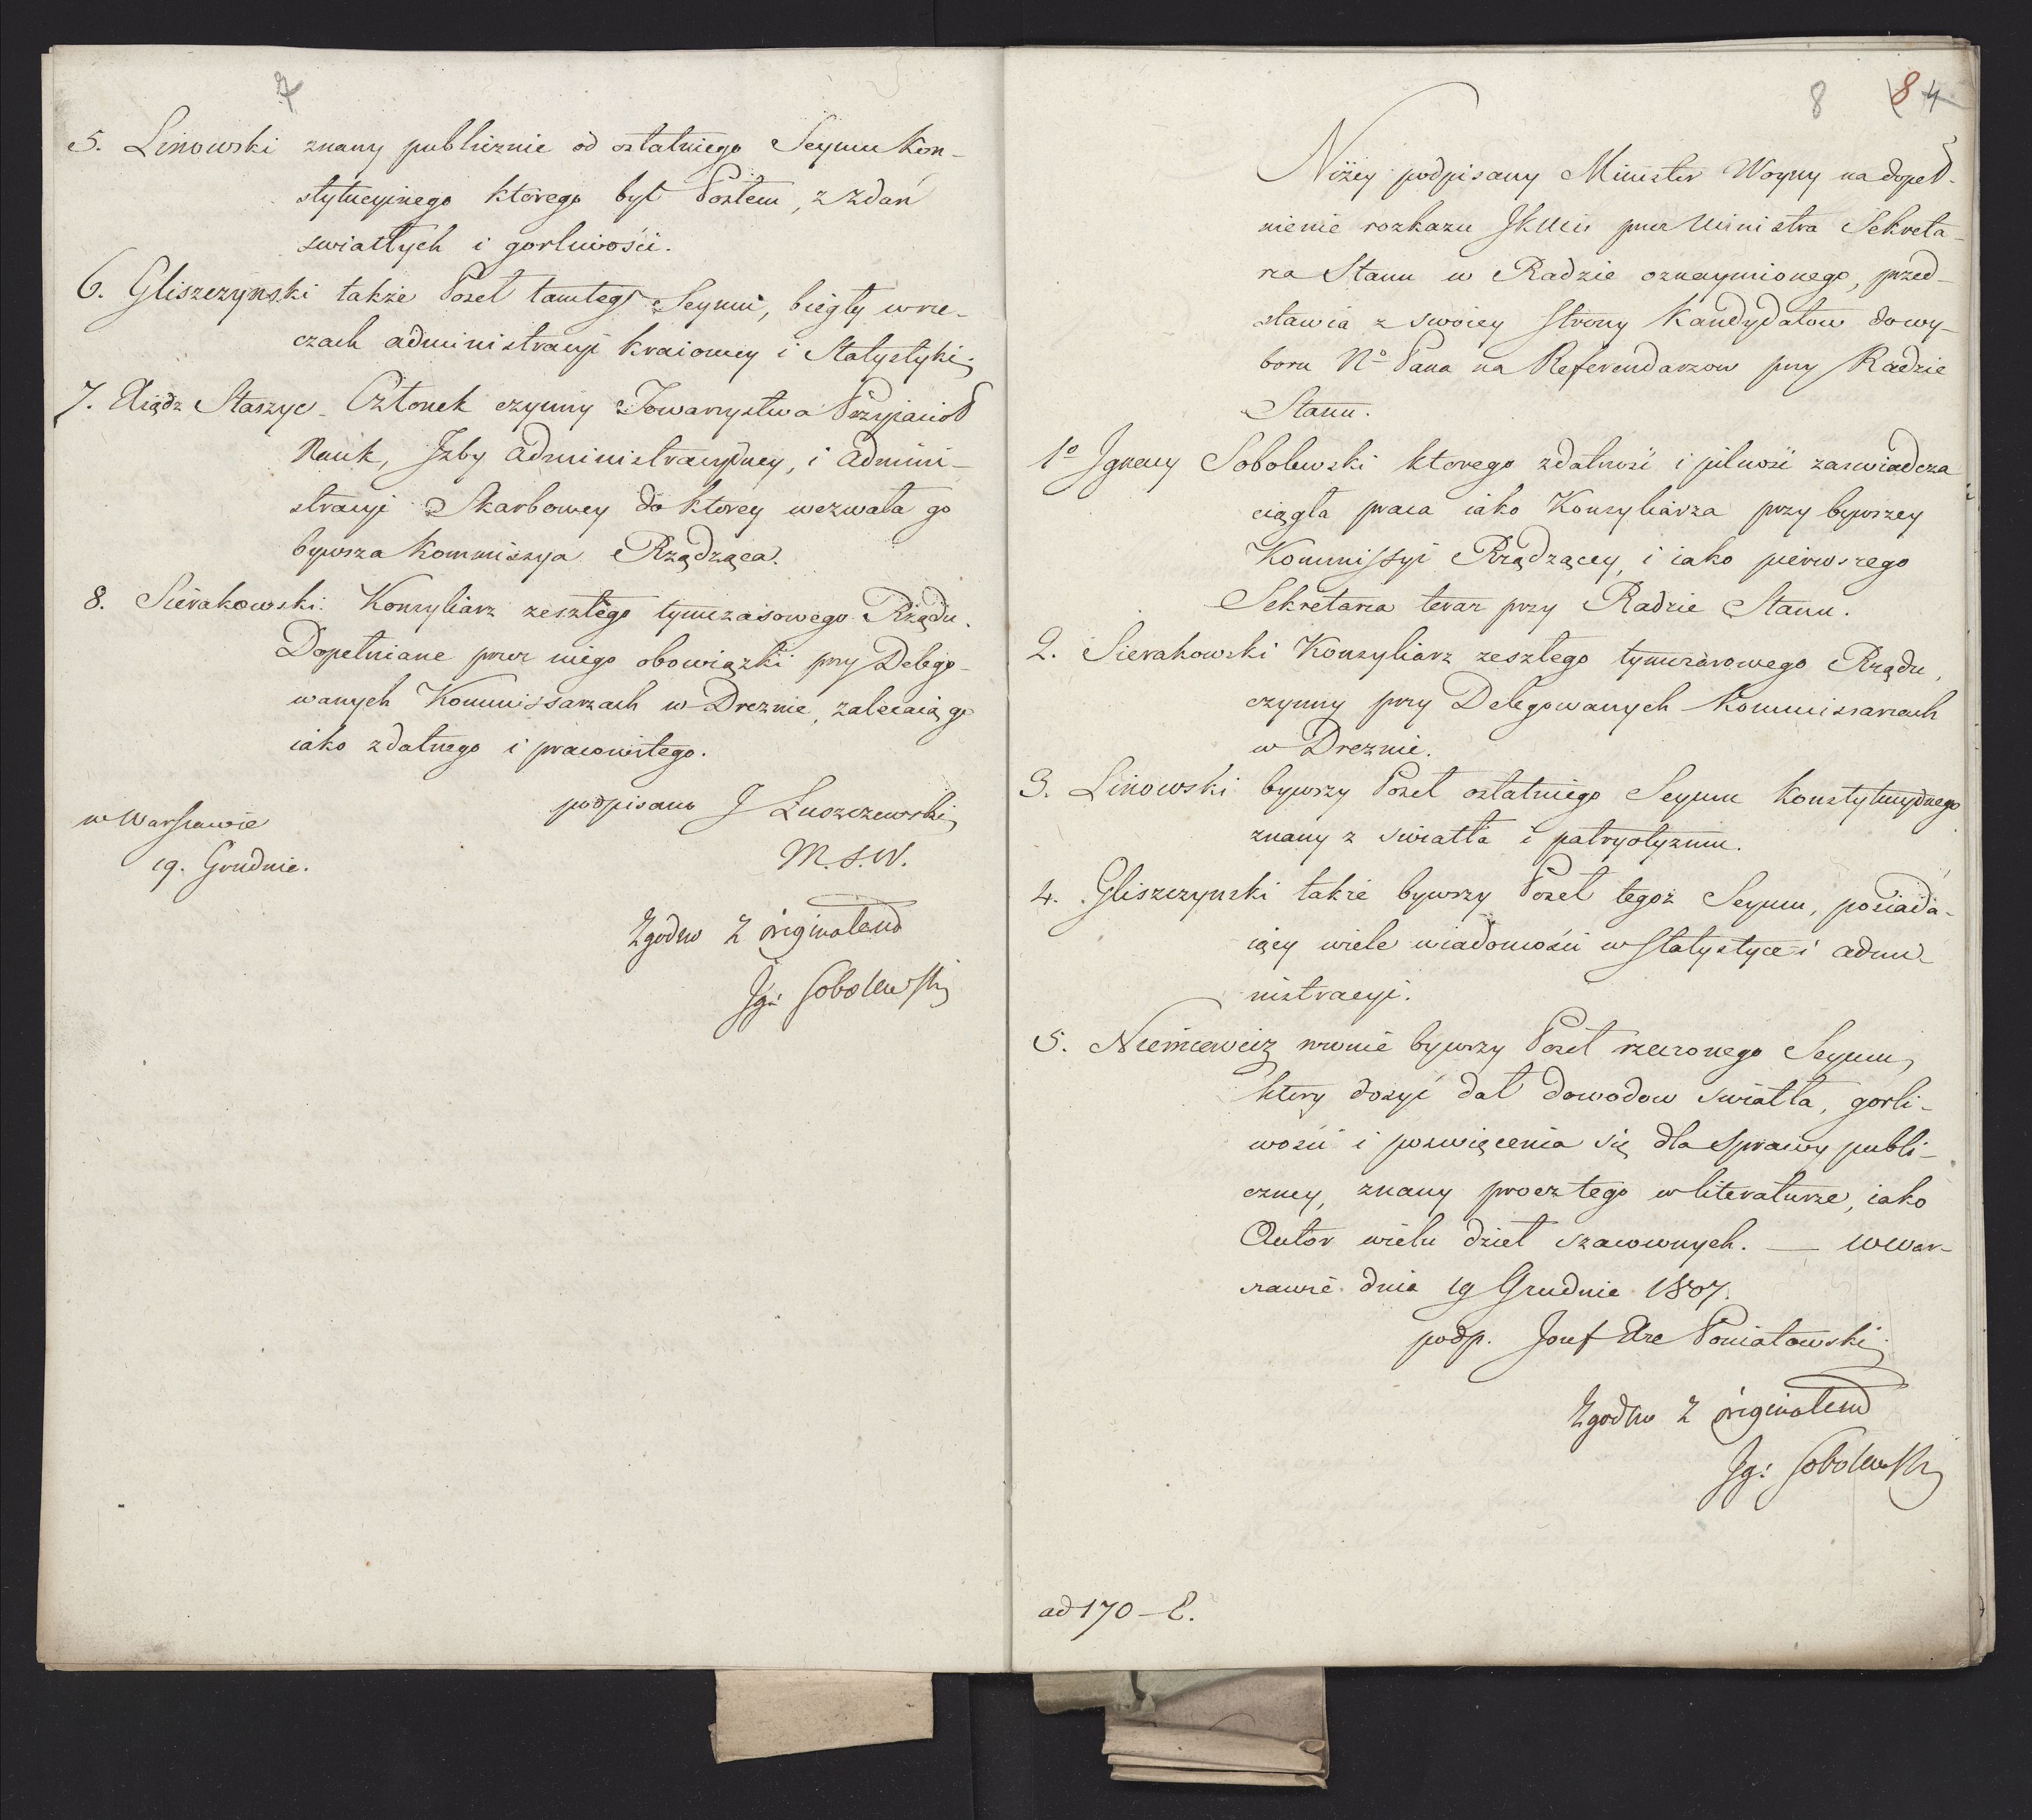 7
5. Linowski znany publicznie od ostatniego Seymu Kon-
stytucyinego którego był Posłem, z zdań
swiatłych i gorliwości.
6. Gliszczynski także Poseł tamtego Seymu, biegły w rze-
czach administracyi kraiowey i Statystyki.
7. Xiądz Staszyc. Członek czynny Towarzystwa Przyiacioł
Nauk, Izby Administracyiney, i Admini-
stracyi Skarbowey do ktorey wezwała go
bywsza Kommissya Rządząca.
8. Sierakowski. Konsyliarz zeszłego tymczasowego Rządu.
Dopełniane przez niego obowiązki przy Delego-
wanych Kommissarzach w Dreznie, zalecaią go
iako zdatnego i pracowitego.
podpisano J Łuszczewski
w Warszawie
M.S.W.
19. Grudnia.
Zgodno z originałem
Ig: Sobolewski
8 8 4
Niżey podpisany Minister Woyny na dopeł-
nienie rozkazu JKMci przez Ministra Sekreta-
rza Stanu w Radzie oznaymionego, przed-
stawia z swoiey strony Kandydatow do wy-
boru No Pana na Referendarzow przy Radzie
Stanu.
1o Ignacy Sobolewski ktorego zdatność i pilność zaswiadcza
ciągła praca iako Konsyliarza przy bywszey
Kommissyi Rządzącey, i iako pierwszego
Sekretarza teraz przy Radzie Stanu.
2. Sierakowski Konsyliarz zeszłego tymczasowego Rządu,
czynny przy Delegowanych Kommissarzach
w Dreznie.
3. Linowski bywszy Poseł ostatniego Seymu Konstytucyinego
znany z swiatła i patryotyzmu.
4. Gliszczynski także bywszy Poseł tegoż Seymu, posiada-
iący wiele wiadomości w Statystyce i admi-
nistracyi.
5. Niemcewicz rownie bywszy Poseł rzeczonego Seymu,
ktory dosyć dał dowodow swiatła, gorli-
wości i poswięcenia się dla sprawy publi-
czney, znany procz tego w literaturze, iako
Autor wielu dzieł szacownych. — w War-
szawie dnia 19 Grudnia 1807.
podp. Jozef Xże Poniatowski
Zgodno z originałem
Ig: Sobolewski
ad 170 —